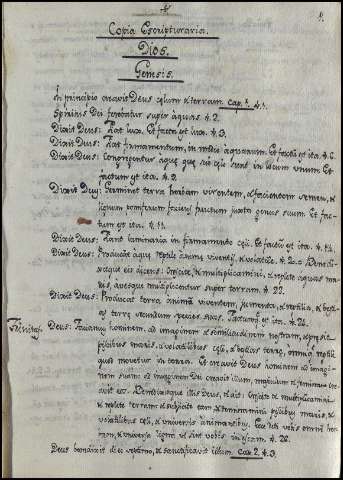 Copia Escripturaria.
Dios.
Genesis.
In principio creavit Deus cęlum & terram. cap. 1. ⁊. 1.
Spiritus Dei ferebatur super aquas. ⁊. 2.
Dixit Deus: Fiat lux. Et facta est lux. ⁊. 3.
Dixit Deus: Fiat firmamentum, in medio aquarum. Et factũ est ita. ⁊. 6.
Dixit Deus: Congregentur aquę, quę sub cęlo sunt in locum unum Et
factum est ita. ⁊. 9.
Dixit Deus: Germinet terra herbam viventem, & facientem semen, &
lignum pomiferum faciens fructum juxta genus suum Et fac-
tum est ita. ⁊. 11.
Dixit Deus: Fiant luminaria in firmamento cęli. Et factũ est ita. ⁊. 14.
Dixit Deus: Producant aquę reptile animę viventis, & volatile. ⁊. 20. Bened-
ixitque eis dicens: Crescite, & multiplicamini, & replete aquas ma-
ris, avesque multiplicentur super terram. ⁊. 22.
Dixit Deus: Producat terra animã viventem, jumenta, & reptilia, & besti-
as terrę secundum species suas. Factumq. est ita. ⁊. 24.
Trinitas Deus: Faciamus hominem ad imaginem & similitudinem nostram, & pręsit
piscibus maris, & volatilibus cęli, & bestiis terrę, omniq. reptili
quod movetur in terra. Et creavit Deus hominem ad imagi-
nem suam: ad imaginem Dei creavit illum, masculum & feminam cre-
avit eos. Benedixitque illis Deus, & ait: Crescite & multiplicamini
& replete terram & subjicite eam, & dominamini piscibus maris, &
volatilibus cęli, & universis animantibus. Ecce dedi vobis omnem her-
bam, & universa ligna ut sint vobis in escam. ⁊. 28.
Deus benedixit diei septimo, & sanctificavit illum. cap. 2. ⁊. 3.